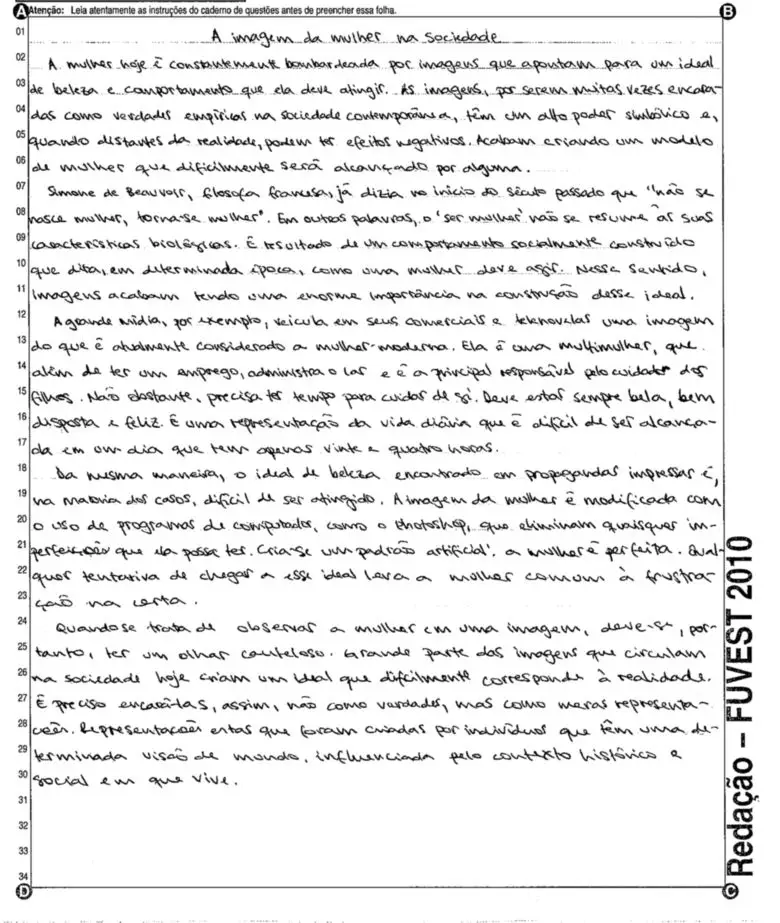 Atenção: Leia atentamente as instruções do caderno de questões antes de preencher essa folha.
A
B
01 A imagem da mulher na sociedade
02 A mulher hoje é constantemente bombardeada por imagens que apontam para um ideal
03 de beleza e comportamento que ela deve atingir. As imagens, por serem muitas vezes encara-
04 das como verdades empíricas na sociedade contemporânea, têm um alto poder simbólico e,
05 quando distantes da realidade, podem ter efeitos negativos. Acabam criando um modelo
06 de mulher que dificilmente será alcançado por alguma.
07 Simone de Beauvoir, filósofa francesa, já dizia no início do século passado que "não se
08 nasce mulher, torna-se mulher". Em outras palavras, o 'ser mulher' não se resume às suas
09 características biológicas. É resultado de um comportamento socialmente construído
10 que dita, em determinada época, como uma mulher deve agir. Nesse sentido,
11 imagens acabam tendo uma enorme importância na construção desse ideal.
12 A grande mídia, por exemplo, veicula em seus comerciais e telenovelas uma imagem
13 do que é atualmente considerado a mulher-moderna. Ela é uma multimulher, que
14 além de ter um emprego, administra o lar e é a principal responsável pelo cuidado dos
15 filhos. Não obstante, precisa ter tempo para cuidar de si. Deve estar sempre bela, bem
16 disposta e feliz. É uma representação da vida diária que é difícil de ser alcança-
17 da em um dia que tem apenas vinte e quatro horas.
18 Da mesma maneira, o ideal de beleza encontrado em propagandas impressas é,
19 na maioria dos casos, difícil de ser atingido. A imagem da mulher é modificada com
20 o uso de programas de computador, como o Photoshop, que eliminam quaisquer im-
21 perfeições que ela possa ter. Cria-se um padrão artificial: a mulher é perfeita. Qual-
22 quer tentativa de chegar a esse ideal leva a mulher comum à frustra-
23 ção na certa.
24 Quando se trata de observar a mulher em uma imagem, deve-se, por-
25 tanto, ter um olhar cauteloso. Grande parte das imagens que circulam
26 na sociedade hoje criam um ideal que dificilmente corresponde à realidade.
27 É preciso encará-las, assim, não como verdades, mas como meras representa-
28 ções. Representações estas que foram criadas por indivíduos que têm uma de-
29 terminada visão de mundo, influenciada pelo contexto histórico e
30 social em que vive.
31
32
33
34
D
C
Redação – FUVEST 2010